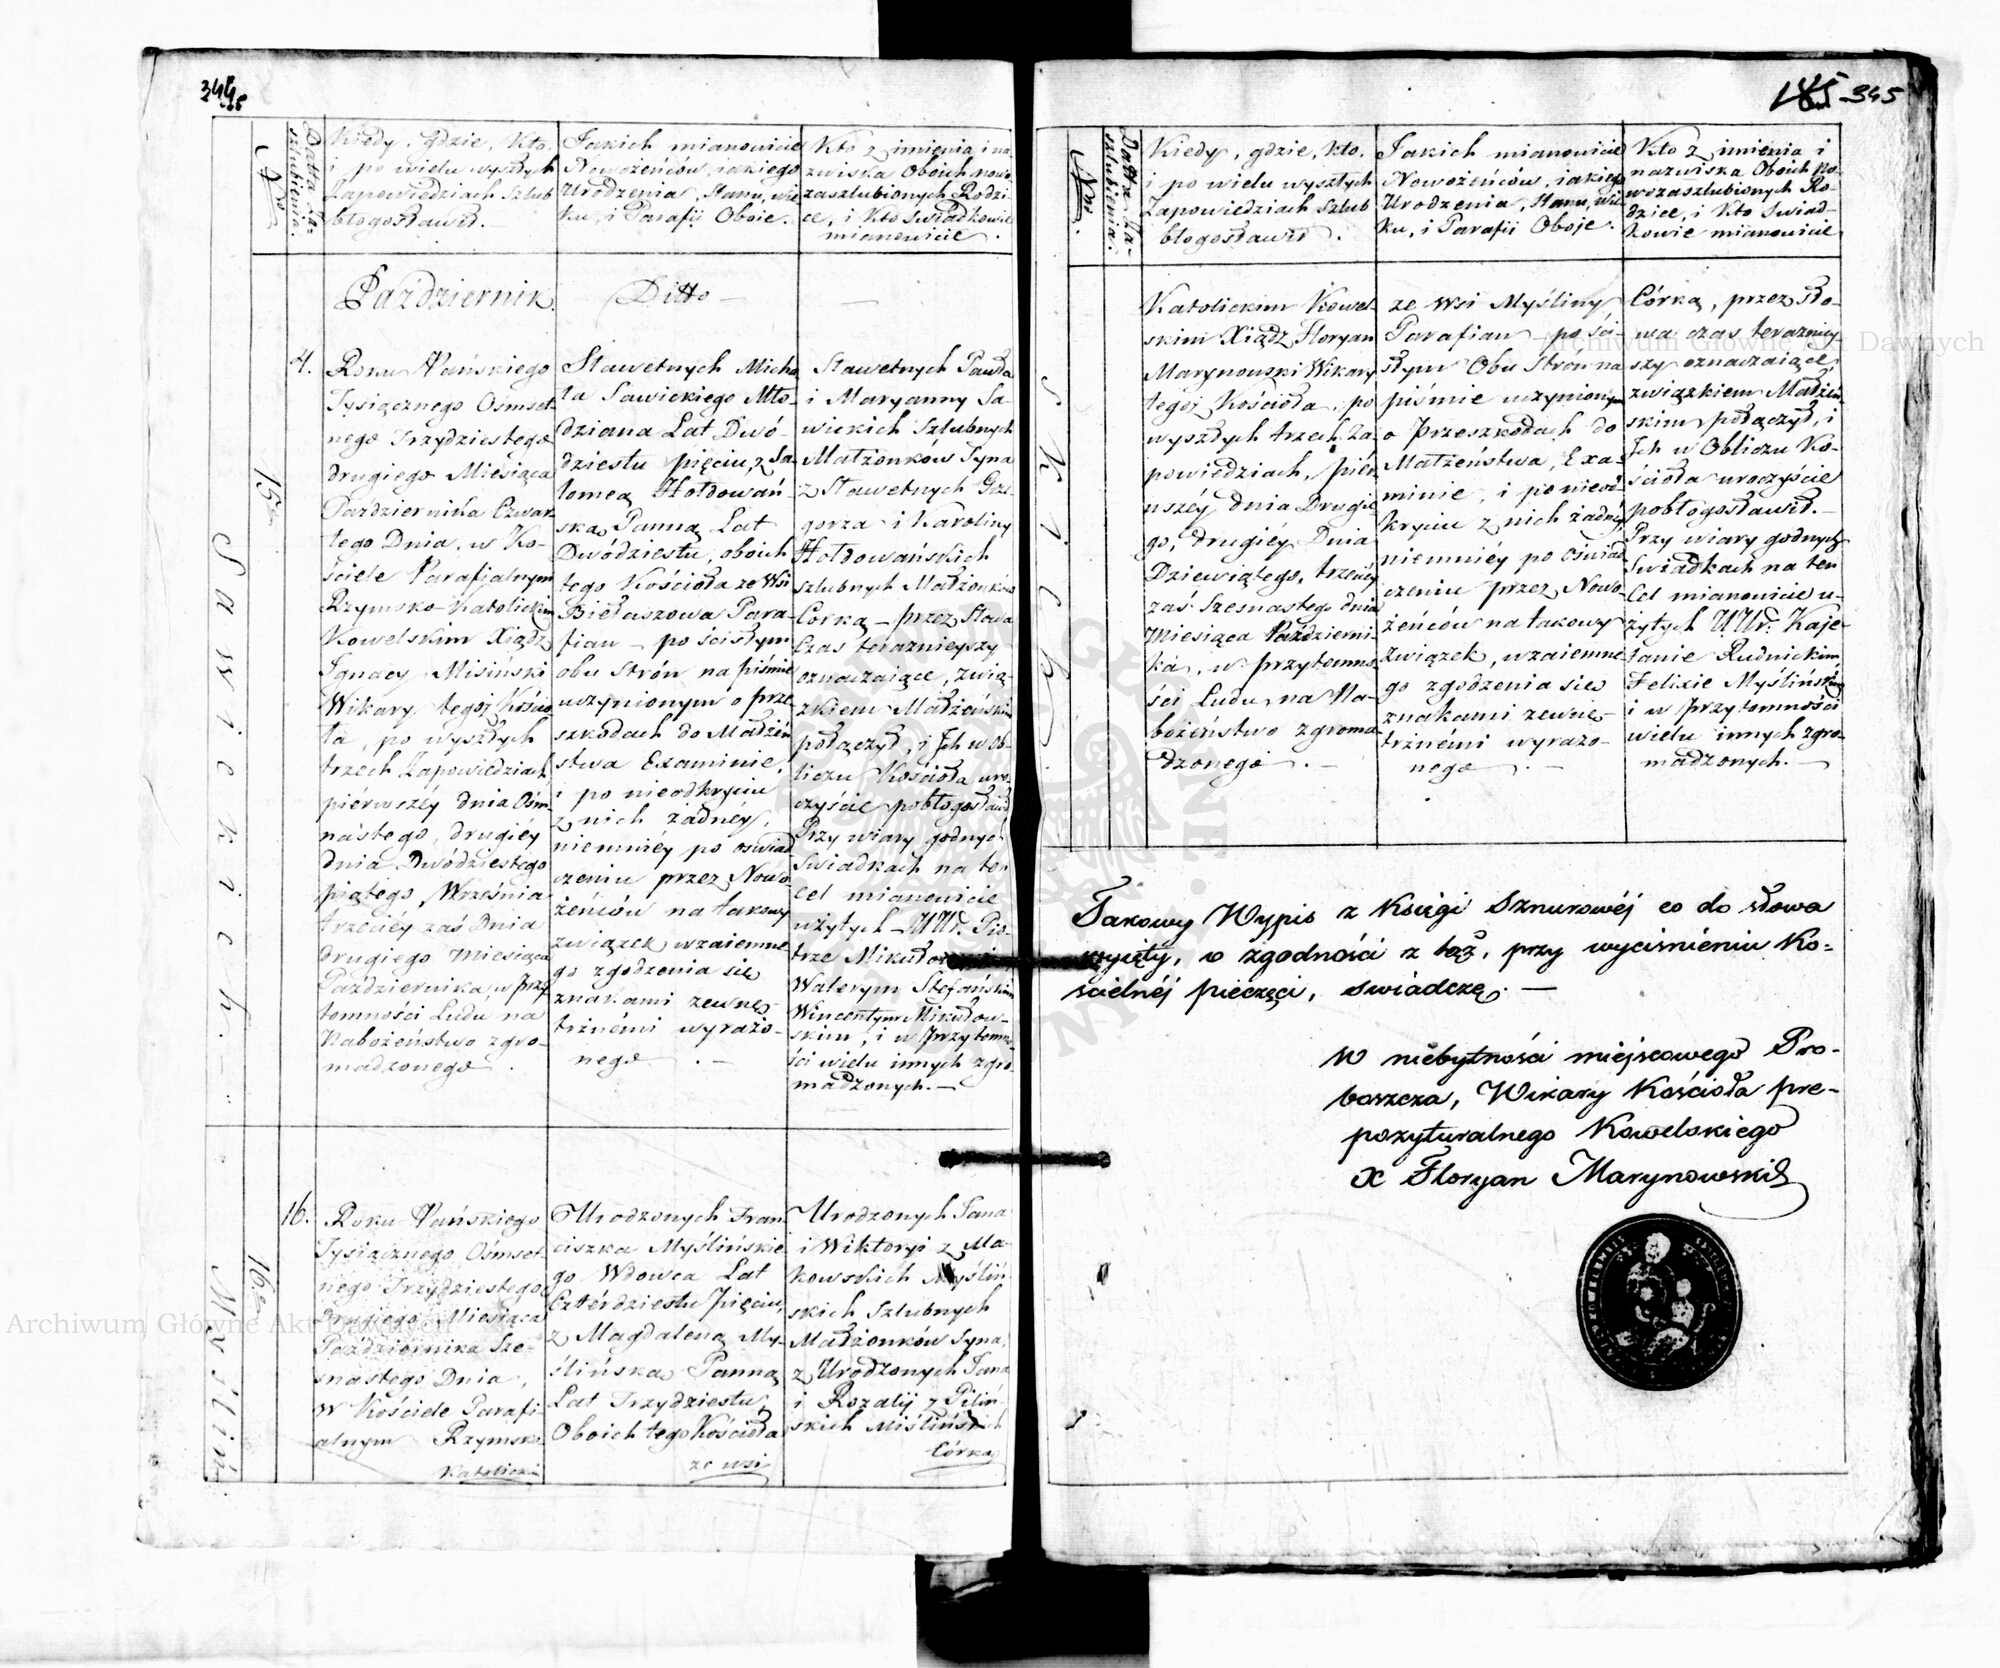 344
Nro.
Datta za-
szlubienia.
Kiedy, gdzie, Kto,
i po wielu wyszłych
Zapowiedziach Szlub
błogosławił.
Jakich mianowicie
Nowożeńców, iakiego
Urodzenia, Stanu, Wie
ku, i Parafij Oboie.
Kto z imienia i na
zwiska Oboich nowo
zaszlubionych Rodzi-
ce, i Kto Swiadkowie
mianowicie.
Październik.
Ditto —
15.
Sawickich.
4.
Roku Pańskiego
Tysiącznego Ośmset-
nego Trzydziestego
drugiego Miesiąca
Października Czwar
tego Dnia, w Ko-
ściele Parafjalnym
Rzymsko-Katolickim
Kowelskim Xiądz
Ignacy Misiński
Wikary tegoj Kościo
ła, po wyszłych
trzech Zapowiedziach
piérwszéy dnia Ośm
nastego, drugiéy
dnia Dwódziestego
piątego Września
trzeciéy zaś Dnia
drugiego Miesiąca
Października, w Przy
tomności Ludu na
Nabożeństwo zgro-
madzonego.
Sławetnych Micha
ła Sawickiego Mło-
dziana Lat Dwó-
dziestu pięciu, z Sa-
lomeą Hołdowań-
ską Panną Lat
Dwódziestu, oboich
tego Kościoła ze Wsi
Biełaszowa Para-
fian — po ścisłym
obu Strón na piśmie
uczynionym o prze
szkodach do Małżeń
stwa Examinie,
i po nieodkryciu
z nich żadnéy,
niemniéy po oświad
czeniu przez Nowo-
żeńców na takowy
związek wzaiemne-
go zgodzenia się
znakami zewnę-
trznémi wyrażo-
nego. —
Sławetnych Pawła
i Maryanny Sa-
wickich Szlubnych
Małżonków Syna
z Sławetnych Grze-
gorza i Karoliny
Hołdowańskich
szlubnych Małżonków
Corką — przez Słowa
Czas teraznieyszy
oznaczaiące, zwią-
zkiem Małżeńskim
połączył, i Ich w Ob-
liczu Kościoła uro-
czyście pobłogosławił
Przy wiary godnych
Swiadkach na ten
Cel mianowicie
użytych UUr. Pio-
trze
Walerym Stefańskim
Wincentym Mikułow-
skim, i w Przytomno-
ści wielu innych zgro
madzonych. —
16.
Myśliń
16.
Roku Pańskiego
Tysiącznego Ośmset-
nego Trzydziestego
drugiego Miesiąca
Października Sze-
snastego Dnia,
w Kościele Parafi-
alnym Rzymsko
Katolickim
Urodzonych Fran
ciszka Myślińskie
go Wdowca Lat
Czterdziestu pięciu,
z Magdaleną My-
ślińską Panną
Lat Trzydziestu,
Oboich tego Kościoła
ze wsi
Urodzonych Jana
i Wiktoryi z Ma-
kowskich Myśliń
skich Szlubnych
Małżonków Syna,
z Urodzonych Jana
i Rozalij z Piliń-
skich Miślińskich
Córką
185 345
Nro.
Datta Za-
szlubienia.
Kiedy, gdzie, Kto,
i po wielu wyszłych
Zapowiedziach Szlub
błogosławił.
Jakich mianowicie
Nowożeńców, iakiego
Urodzenia, Stanu, Wie
ku, i Parafii Oboje.
Kto z imienia i
nazwiska Oboich No
wozaszlubionych Ro-
dzice, i Kto Swiad-
kowie mianowicie
skich.
Katolickim Kowel-
skim Xiądz Floryan
Marynowski Wikary
tegoj Kościoła, po
wyszłych trzech Za-
powiedziach, piér-
wszéy dnia Drugie
go, drugiéy Dnia
Dziewiątego, trzeciéy
zaś Szesnastego dnia
Miesiąca Październi-
ka, w przytomno-
ści Ludu na Na-
bożeństwo zgroma
dzonego. —
ze Wsi Myśliny
Parafian — po ści-
słym Obu Strón na
piśmie uczynionym
o Przeszkodach do
Małżeństwa, Exa-
minie, i po nieod-
kryciu z nich żadnéy,
niemniéy po oświad
czeniu przez Nowo-
żeńców na takowy
związek, wzaiemne
go zgodzenia się
znakami zewnę-
trznémi wyrażo-
nego. —
Córką, przez Sło-
wa czas terazniey
szy oznaczaiące
związkiem Małżeń
skim połączył, i
Ich w Obliczu Ko-
ścioła uroczyście
pobłogosławił. —
Przy wiary godnych
Swiadkach na ten
Cel mianowicie u-
żytych UUr. Kaje-
tanie Rudnickim,
Felixie Myślińskim
i w przytomności
wielu innych zgro-
madzonych. —
Takowy Wypis z Księgi Sznurowéj co do słowa
wyięty, w zgodności z tąż, przy wyciśnieniu Ko-
ścielnéj pieczęci, swiádczę. —
w niebytności miejscowego Pro-
boszcza, Wikary Kościoła pre-
pozyturalnego Kowelskiego
X Floryan Marynowski
Archiwum Główne Akt Dawnych
Archiwum Główne Akt Dawnych